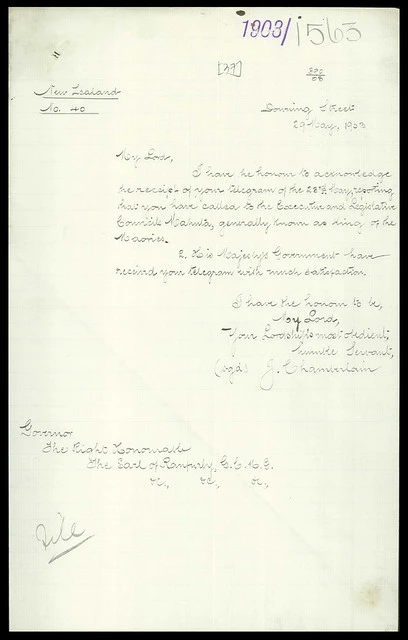 1903/1563
[37]
New Zealand
No. 40
Downing Street
29 May, 1903
My Lord,
I have the honour to acknowledge
the receipt of your telegram of the 28th May, reporting
that you have called to the Executive and Legislative
Councils Mahuta, generally known as King of the
Maories.
2. His Majesty's Government have
received your telegram with much satisfaction.
I have the honor to be,
My Lord,
Your Lordship's most obedient,
humble Servant,
(sgd) J. Chamberlain
Governor
The Right Honourable
The Earl of Ranfurly, G.C.M.G.
&c., &c., &c.,
File